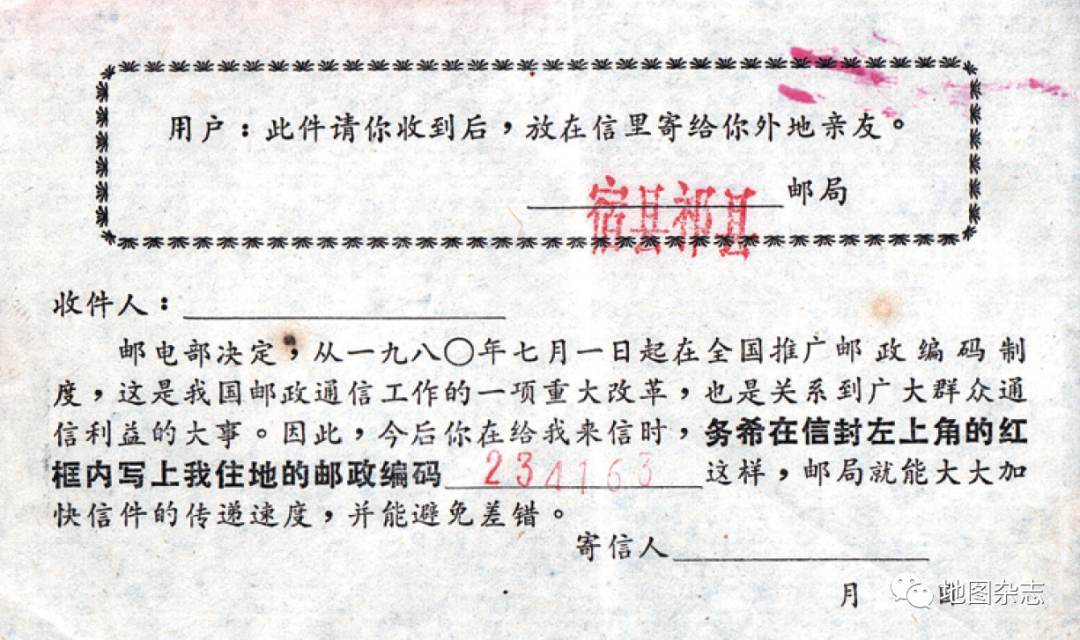 用户：此件请你收到后，放在信里寄给你外地亲友。
宿县祁县邮局
收件人：
邮电部决定，从一九八〇年七月一日起在全国推广邮政编码制
度，这是我国邮政通信工作的一项重大改革，也是关系到广大群众通
信利益的大事。因此，今后你在给我来信时，务希在信封左上角的红
框内写上我住地的邮政编码234163这样，邮局就能大大加
快信件的传递速度，并能避免差错。
寄信人
月
地图杂志